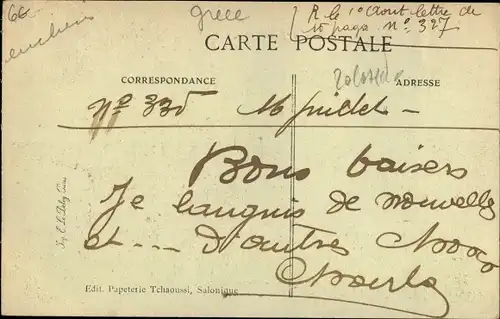 6€
Grece
R le 1° Aout lettre de
10 pages N°. 327
CARTE POSTALE
CORRESPONDANCE
ADRESSE
N° 335 16 juillet -
Bons baisers
Je languis de nouvelles
et ... d'autres
Imp. E. Le Deley, Paris
Edit. Papeterie Tchaoussi, Salonique